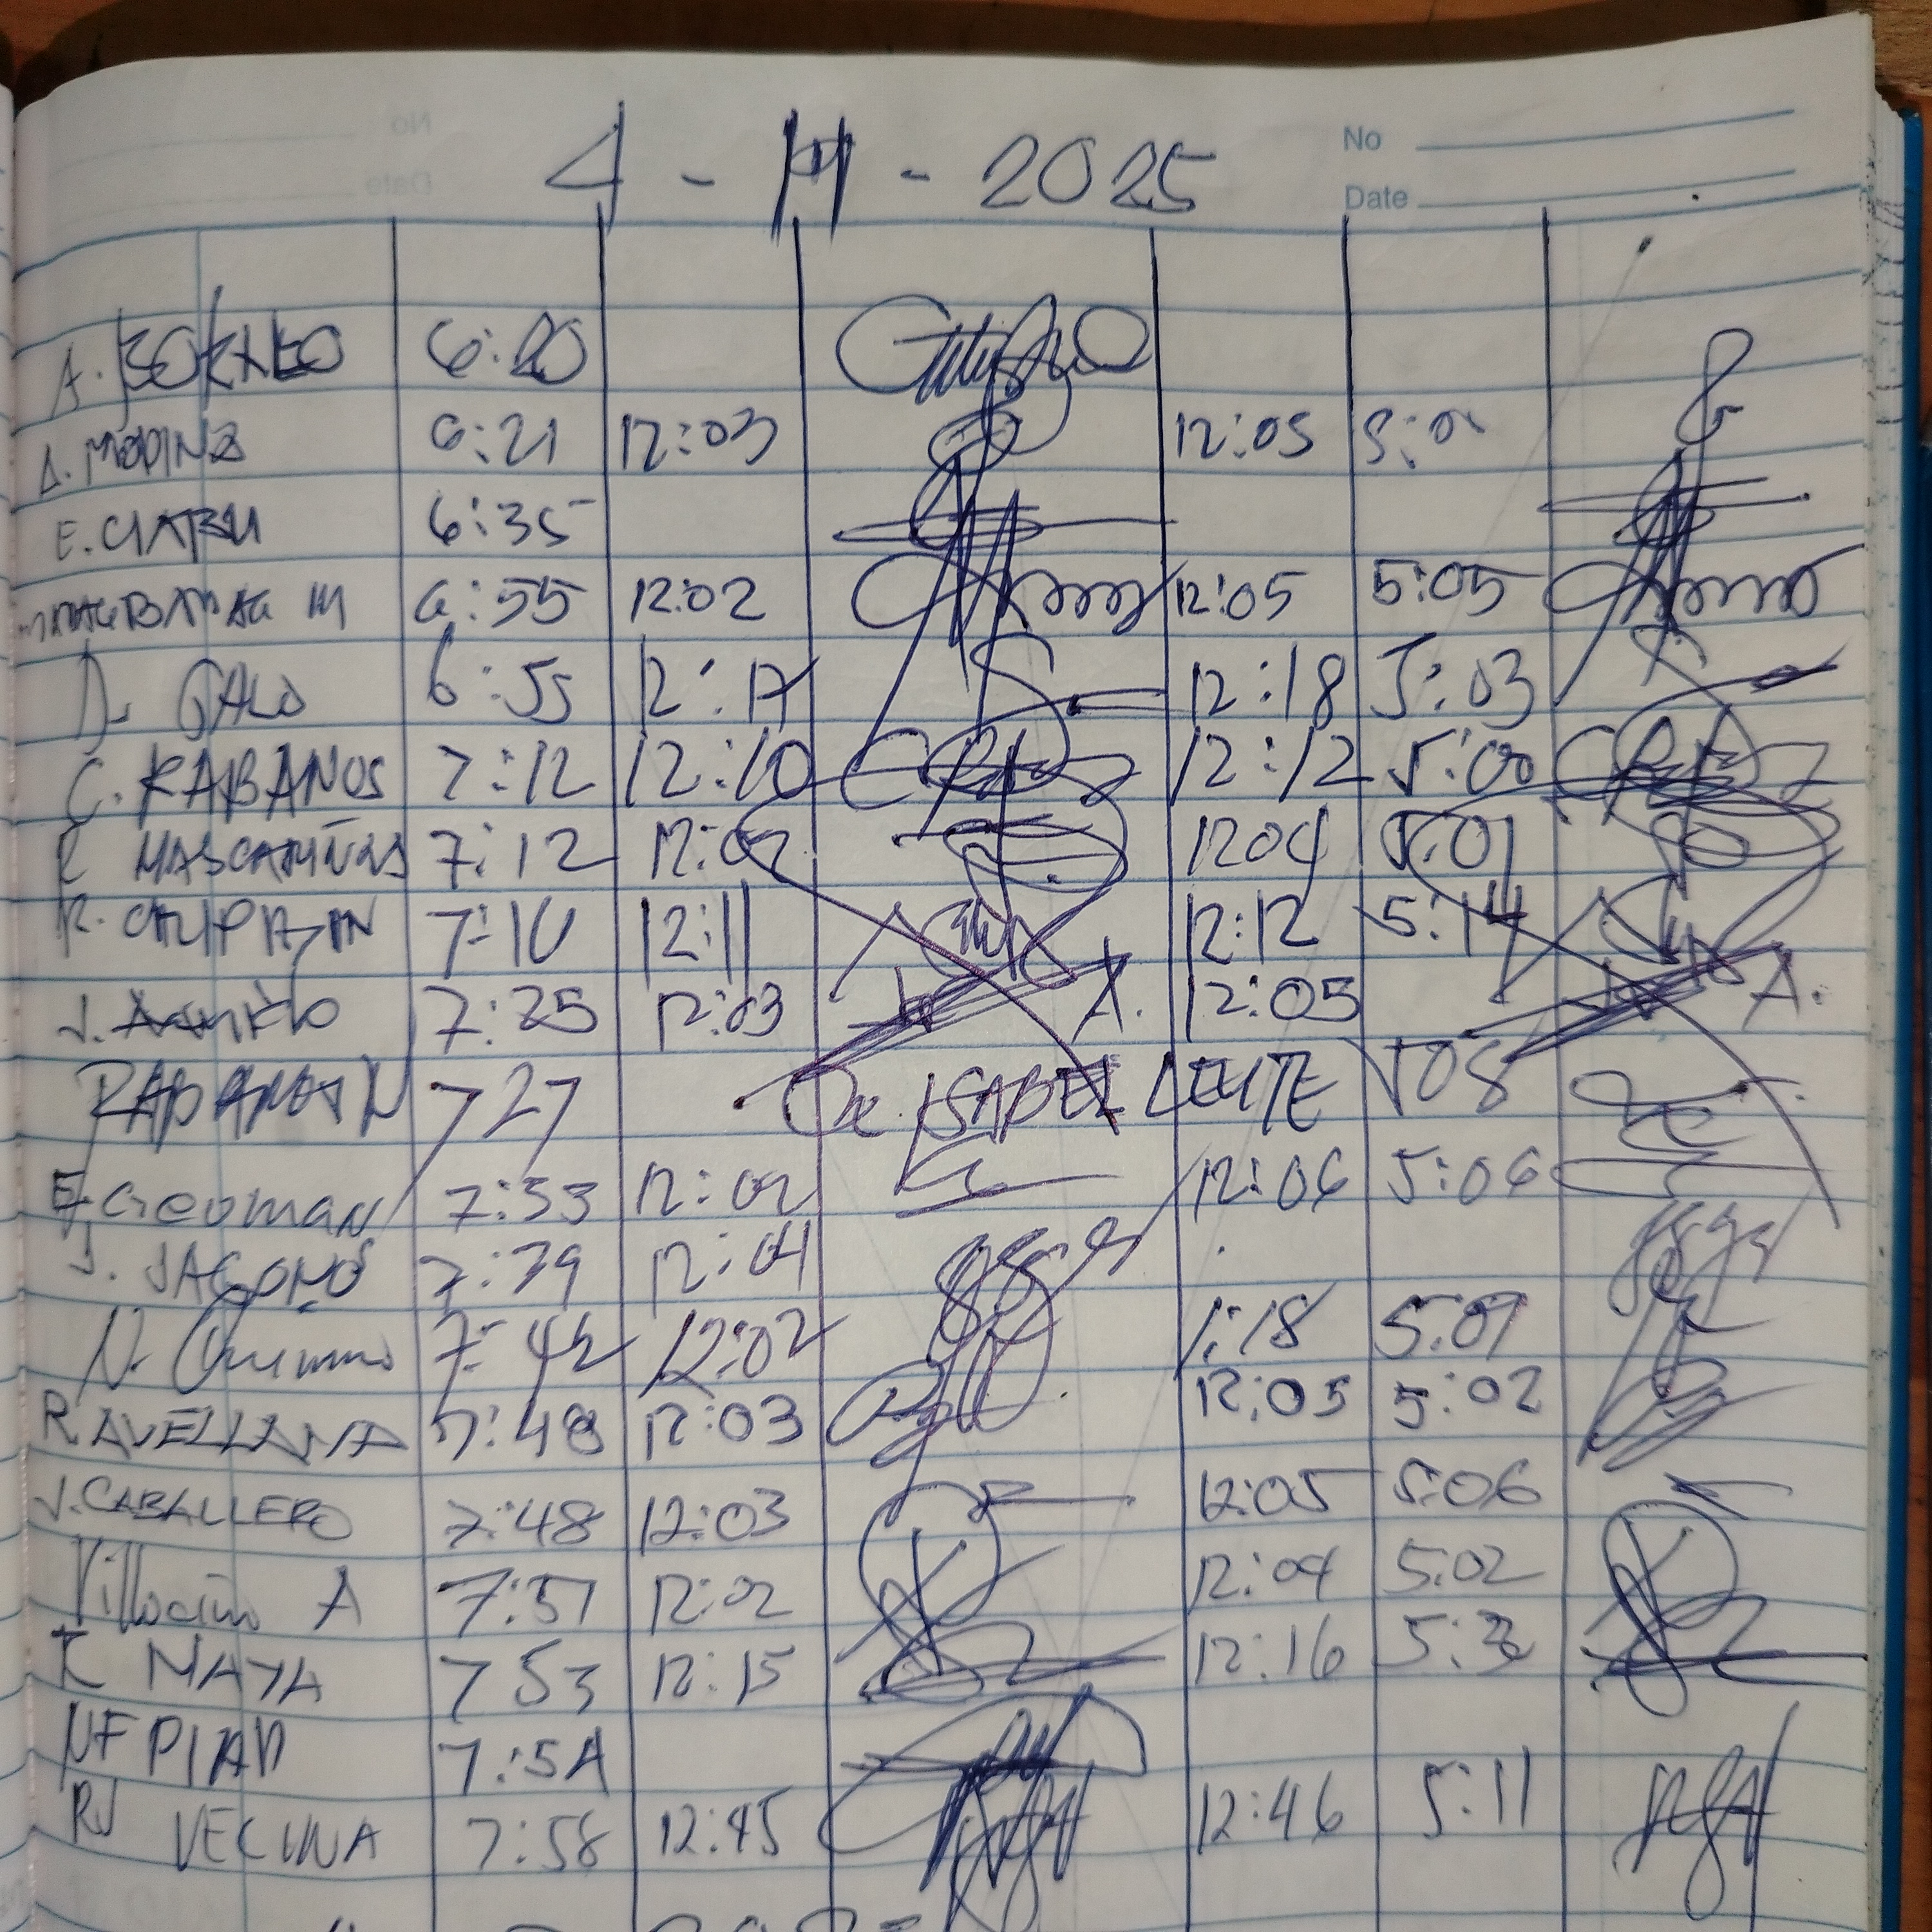 No
Date
4 - 14 - 2025
A. BORNEO 6:20
A. MEDINA 6:21 12:03 12:05
E. CLABU 6:35
MAGBANAG III 6:55 12:02 12:05 5:05
D. GALO 6:55 12:17 12:18 5:03
C. RABANOS 7:12 12:10 12:12 5:00
R MASCARIÑAS 7:12 12:02 1204 5:01
R. 7:10 12:11 12:12 5:14
J. 7:25 12:03 A. 12:05 A.
727 ISABEL LEYTE 508
E. Geoman 7:33 12:02 12:06 5:06
J. JAGONOS 7:39 12:04
N. 7:42 12:02 1:18 5:09
R AVELLANA 7:48 12:03 12:05 5:02
J. CABALLERO 7:48 12:03 12:05 5:06
Villocino A 7:51 12:02 12:04 5:02
K MAYA 7 53 12:15 12:16
NF PIAD 7:54
RJ VECINA 7:58 12:45 12:46 5:11